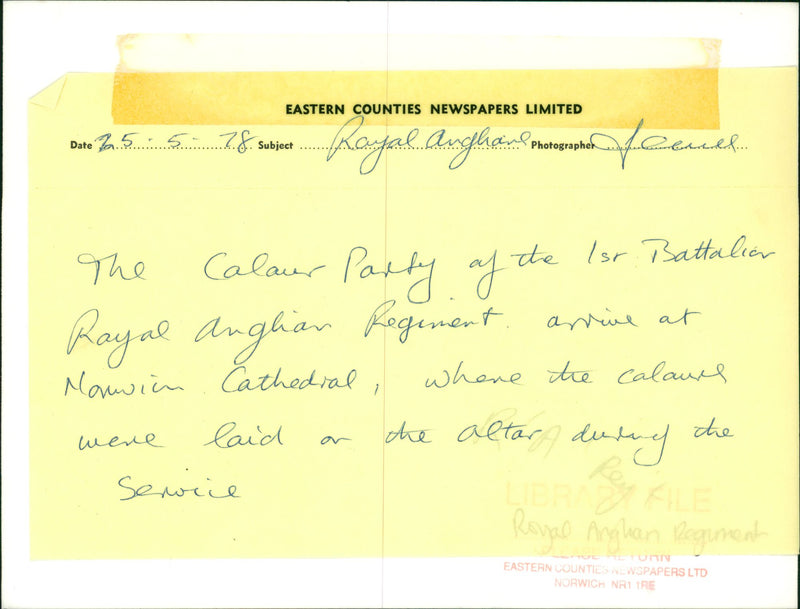 EASTERN COUNTIES NEWSPAPERS LIMITED
Date 25-5-78 Subject Royal Anglians Photographer
The Colour Party of the 1st Battalion
Royal Anglian Regiment arrive at
Norwich Cathedral, where the colours
were laid on the altar during the
Service
R A
Reg
LIBRARY FILE
Royal Anglian Regiment
PLEASE RETURN
EASTERN COUNTIES NEWSPAPERS LTD
NORWICH NR1 1RE